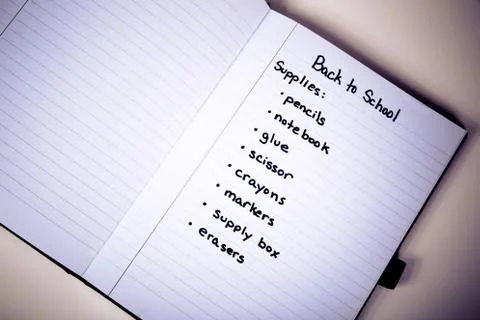 Back to School
Supplies:
• pencils
• notebook
• glue
• scissor
• crayons
• markers
• supply box
• erasers